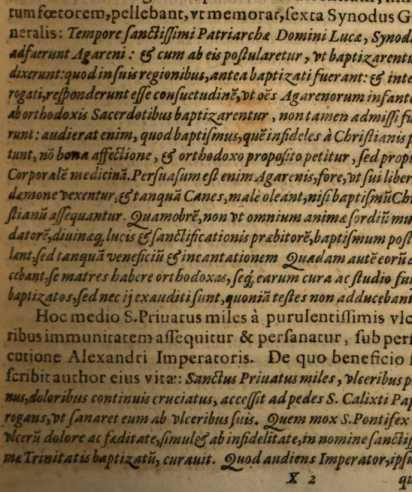 tum fœtorem, pellebant, vt memorat, sexta Synodus G
neralis: Tempore sanctissimi Patriarchæ Domini Lucæ, Synod
adfuerunt Agareni: & cum ab eis postularetur, vt baptizarentu
dixerunt: quod in suis regionibus, antea baptizati fuerant: & inte
rogati, responderunt esse consuetudinē, vt oēs Agarenorum infant
ab orthodoxis Sacerdotibus baptizarentur, non tamen admissi fu
runt: audierat enim, quod baptismus, quē infideles à Christianis p
tunt, nō bona affectione, & orthodoxo proposito petitur, sed prop
Corporalē medicinā. Persuasum est enim Agarenis, fore, vt sui liber
dæmone vexentur, & tanquā Canes, malè oleant, nisi baptismū Chr
stianū assequantur. Quamobrē, non vt omnium animæ sordiū mu
datorē, diuinæq; lucis & sanctificationis præbitorē, baptismum post
lant, sed tanquā veneficiū & incantationem Quædam autē eorū a
cebant, se matres habere orthodoxas, seq; earum cura ac studio fu
baptizatos, sed nec ij exauditi sunt, quoniā testes non adducebant
Hoc medio S. Priuatus miles à purulentissimis vlc
ribus immunitatem assequitur & persanatur, sub pers
cutione Alexandri Imperatoris. De quo beneficio s
scribit author eius vitæ: Sanctus Priuatus miles, vlceribus p
nus, doloribus continuis cruciatus, accessit ad pedes S. Calixti Pap
rogans, vt sanaret eum ab vlceribus suis. Quem mox S. Pontifex
vlcerū dolore ac fœditate, simul & ab infidelitate, in nomine sanctis
mæ Trinitatis baptizatū, curauit. Quod audiens Imperator, ips
X 2 q